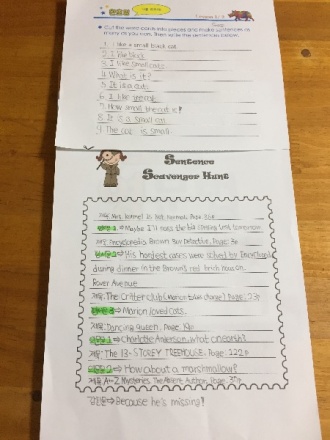 Cut the word cards into pieces and make sentences as many as you can. Then write the sentences below.
1. I like a small black cat.
2. I like black
3. I like small cats
4. What is it?
5. It is a cute
6. I like
7. How small the cat is!
8. It is a small cat
9. The cat is small
Sentence
Scavenger Hunt
Page
Maybe I'll
Encyclopedia Brown Boy Detective, Page
⇒ His hardest cases were solved by Encyclopedia
during dinner in the Brown's red brick house on
Rover Avenue
The Critter club (Marion takes charge) Page. 23p
⇒ Marion loved cats.
Dancing Queen, Page
⇒ Charlotte Anderson, what on earth?
The 13-STOREY TREEHOUSE. Page. 122p
⇒ How about a marshmallow?
A-Z Mysteries. The Absent Author, Page
⇒ Because he's missing!